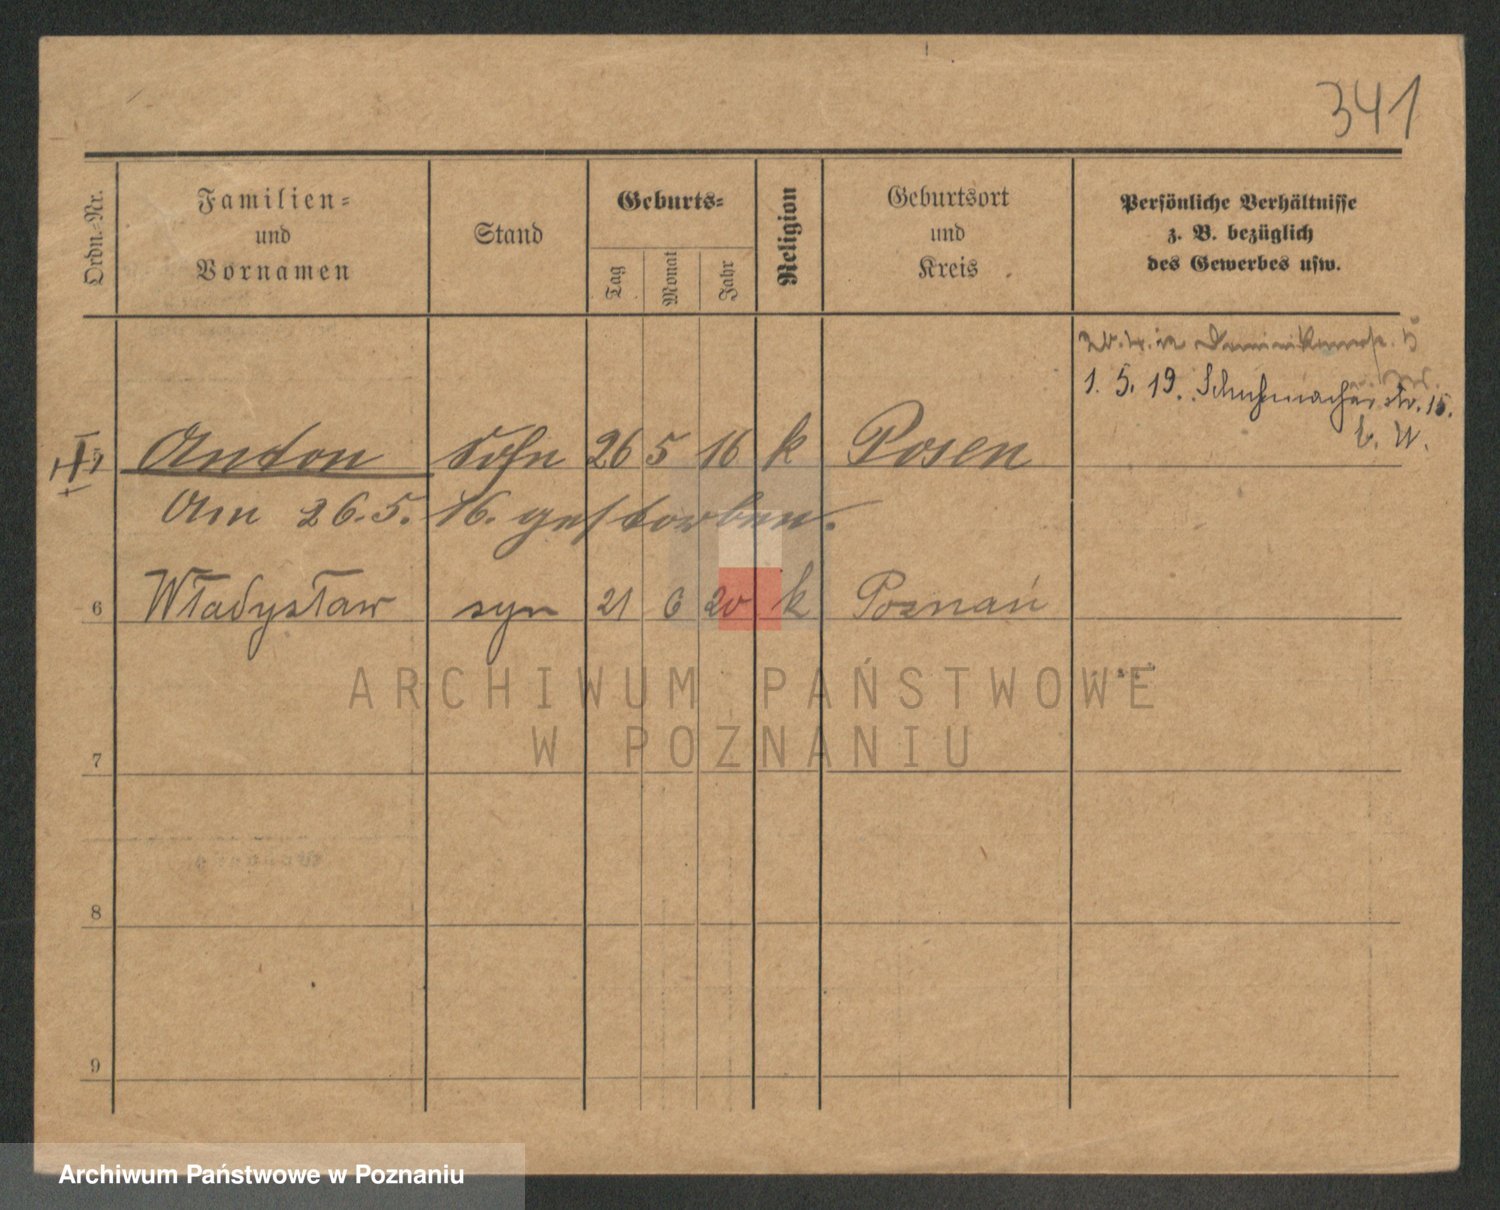 341
Ordn.-Nr.
Familien-
und
Vornamen
Stand
Geburts-
Tag
Monat
Jahr
Religion
Geburtsort
und
Kreis
Persönliche Verhältnisse
z. B. bezüglich
des Gewerbes usw.
1. 5. 19. Schuhmacherstr. 15.
b. W.
5 Anton Sohn 26 5 16 k Posen
Am 26. 5. 16. gestorben.
6 Władysław syn 21 6 20 k Poznań
ARCHIWUM PAŃSTWOWE
W POZNANIU
7
8
9
Archiwum Państwowe w Poznaniu